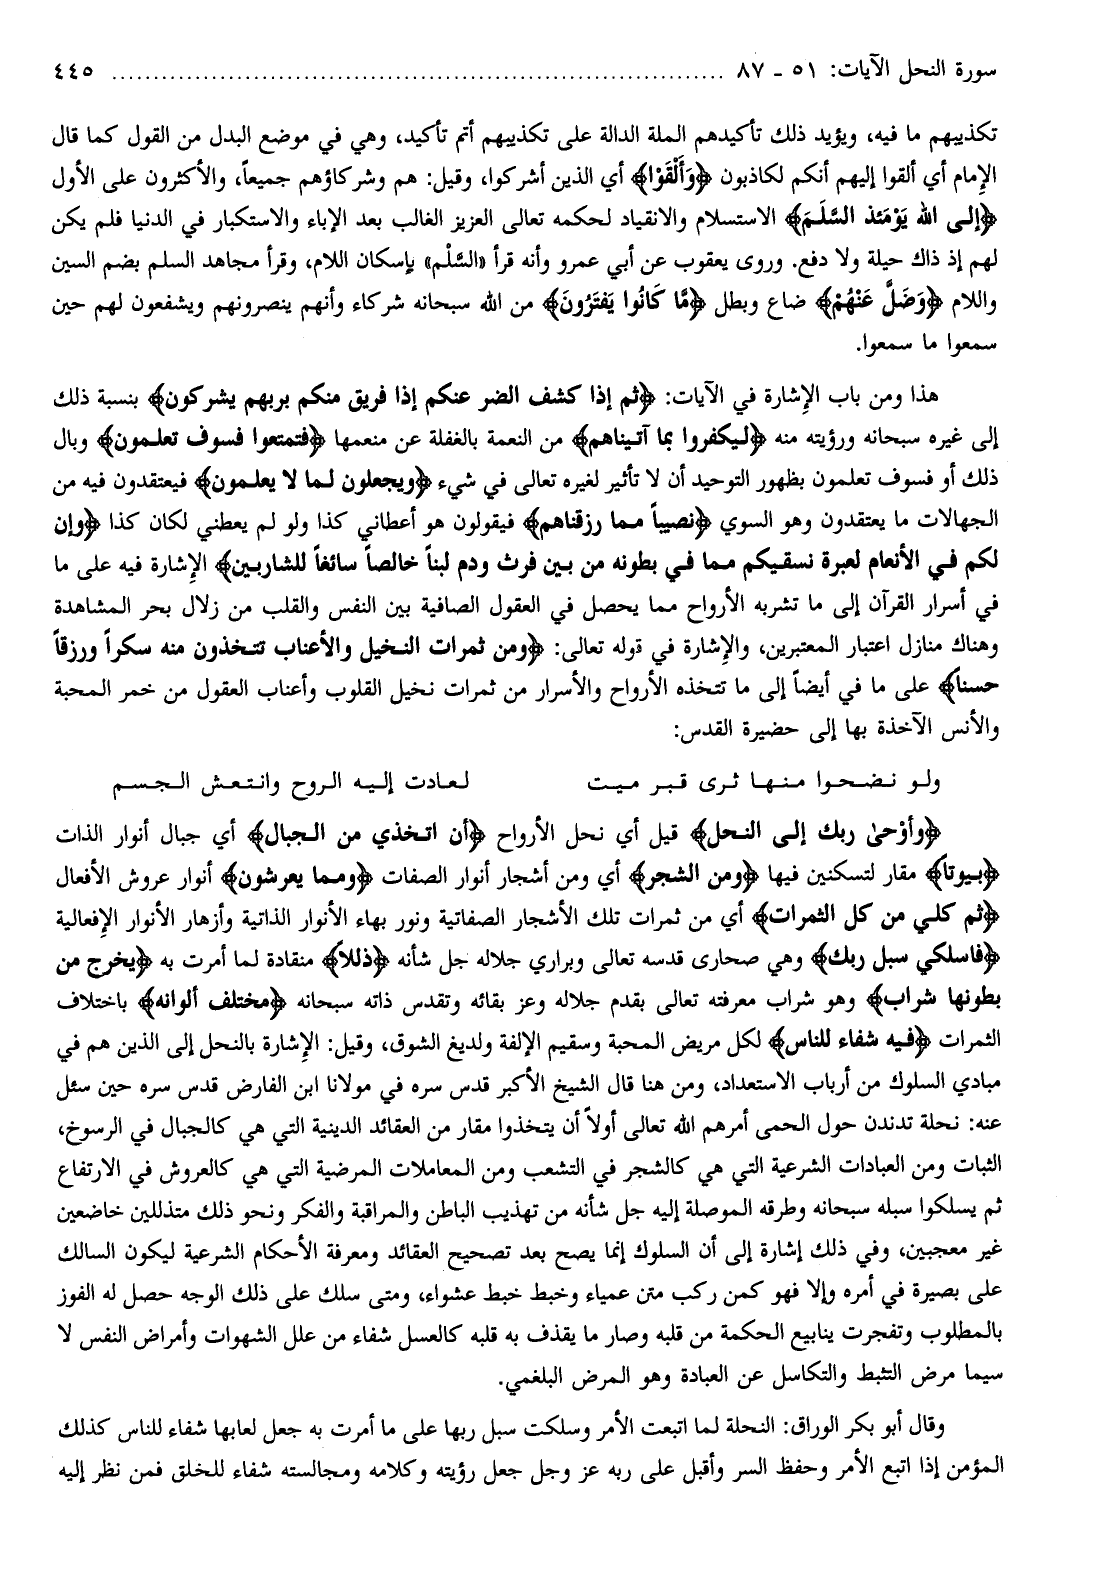 سورة النحل الآيات: ٥١ ـ ٨٧ ........................................................................... ٤٤٥
تكذيبهم ما فيه، ويؤيد ذلك تأكيدهم الملة الدالة على تكذيبهم أتم تأكيد، وهي في موضع البدل من القول كما قال
الإمام أي ألقوا إليهم أنكم لكاذبون ﴿وَأَلْقَوْا﴾ أي الذين أشركوا، وقيل: هم وشركاؤهم جميعاً، والأكثرون على الأول
﴿إلى الله يَوْمَئذ السَّلَمَ﴾ الاستسلام والانقياد لحكمه تعالى العزيز الغالب بعد الإباء والاستكبار في الدنيا فلم يكن
لهم إذ ذاك حيلة ولا دفع. وروى يعقوب عن أبي عمرو وأنه قرأ «السَّلْم» بإسكان اللام، وقرأ مجاهد السلم بضم السين
واللام ﴿وَضَلَّ عَنْهُمْ﴾ ضاع وبطل ﴿مَّا كَانُوا يَفْتَرُونَ﴾ من الله سبحانه شركاء وأنهم ينصرونهم ويشفعون لهم حين
سمعوا ما سمعوا.
هذا ومن باب الإشارة في الآيات: ﴿ثم إذا كشف الضر عنكم إذا فريق منكم بربهم يشركون﴾ بنسبة ذلك
إلى غيره سبحانه ورؤيته منه ﴿ليكفروا بما آتيناهم﴾ من النعمة بالغفلة عن منعمها ﴿فتمتعوا فسوف تعلمون﴾ وبال
ذلك أو فسوف تعلمون بظهور التوحيد أن لا تأثير لغيره تعالى في شيء ﴿ويجعلون لما لا يعلمون﴾ فيعتقدون فيه من
الجهالات ما يعتقدون وهو السوي ﴿نصيباً مما رزقناهم﴾ فيقولون هو أعطاني كذا ولو لم يعطني لكان كذا ﴿وإن
لكم في الأنعام لعبرة نسقيكم مما في بطونه من بين فرث ودم لبناً خالصاً سائغاً للشاربين﴾ الإشارة فيه على ما
في أسرار القرآن إلى ما تشربه الأرواح مما يحصل في العقول الصافية بين النفس والقلب من زلال بحر المشاهدة
وهناك منازل اعتبار المعتبرين، والإشارة في قوله تعالى: ﴿ومن ثمرات النخيل والأعناب تتخذون منه سكراً ورزقاً
حسنا﴾ على ما في أيضاً إلى ما تتخذه الأرواح والأسرار من ثمرات نخيل القلوب وأعناب العقول من خمر المحبة
والأنس الآخذة بها إلى حضيرة القدس:
ولو نضحوا منها ثرى قبر ميت لعادت إليه الروح وانتعش الجسم
﴿وأوْحىٰ ربك إلى النحل﴾ قيل أي نحل الأرواح ﴿أن اتخذي من الجبال﴾ أي جبال أنوار الذات
﴿بيوتاً﴾ مقار لتسكنين فيها ﴿ومن الشجر﴾ أي ومن أشجار أنوار الصفات ﴿ومما يعرشون﴾ أنوار عروش الأفعال
﴿ثم كلي من كل الثمرات﴾ أي من ثمرات تلك الأشجار الصفاتية ونور بهاء الأنوار الذاتية وأزهار الأنوار الإفعالية
﴿فاسلكي سبل ربك﴾ وهي صحارى قدسه تعالى وبراري جلاله جل شأنه ﴿ذللاً﴾ منقادة لما أمرت به ﴿يخرج من
بطونها شراب﴾ وهو شراب معرفته تعالى بقدم جلاله وعز بقائه وتقدس ذاته سبحانه ﴿مختلف ألوانه﴾ باختلاف
الثمرات ﴿فيه شفاء للناس﴾ لكل مريض المحبة وسقيم الإلفة ولديغ الشوق، وقيل: الإشارة بالنحل إلى الذين هم في
مبادي السلوك من أرباب الاستعداد، ومن هنا قال الشيخ الأكبر قدس سره في مولانا ابن الفارض قدس سره حين سئل
عنه: نحلة تدندن حول الحمى أمرهم الله تعالى أولاً أن يتخذوا مقار من العقائد الدينية التي هي كالجبال في الرسوخ،
الثبات ومن العبادات الشرعية التي هي كالشجر في التشعب ومن المعاملات المرضية التي هي كالعروش في الارتفاع
ثم يسلكوا سبله سبحانه وطرقه الموصلة إليه جل شأنه من تهذيب الباطن والمراقبة والفكر ونحو ذلك متذللين خاضعين
غير معجبين، وفي ذلك إشارة إلى أن السلوك إنما يصح بعد تصحيح العقائد ومعرفة الأحكام الشرعية ليكون السالك
على بصيرة في أمره وإلا فهو كمن ركب متن عمياء وخبط خبط عشواء، ومتى سلك على ذلك الوجه حصل له الفوز
بالمطلوب وتفجرت ينابيع الحكمة من قلبه وصار ما يقذف به قلبه كالعسل شفاء من علل الشهوات وأمراض النفس لا
سيما مرض التثبط والتكاسل عن العبادة وهو المرض البلغمي.
وقال أبو بكر الوراق: النحلة لما اتبعت الأمر وسلكت سبل ربها على ما أمرت به جعل لعابها شفاء للناس كذلك
المؤمن إذا اتبع الأمر وحفظ السر وأقبل على ربه عز وجل جعل رؤيته وكلامه ومجالسته شفاء للخلق فمن نظر إليه